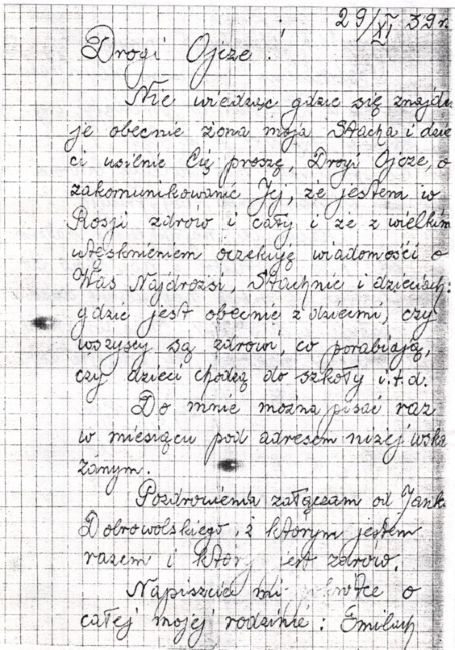 29/XI 39 r.
Drogi Ojcze!
Nie wiedząc gdzie się znajdu
je obecnie żona moja Stacha i dzie
ci usilnie Cię proszę, Drogi Ojcze, o
zakomunikowanie Jej, że jestem w
Rosji zdrów i cały i że z wielkim
utęsknieniem oczekuję wiadomości o
Was Najdrożsi, Stachnie i dzieciach:
gdzie jest obecnie z dziećmi, czy
wszyscy są zdrowi, co porabiają,
czy dzieci chodzą do szkoły i.t.d.
Do mnie można pisać raz
w miesiącu pod adresem niżej wska
zanym.
Pozdrowienia załączam od Janka
Dobrowolskiego, z którym jestem
razem i który jest zdrów.
Napiszcie mi o
całej mojej rodzinie: